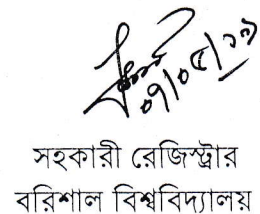 ০৭/০৫/১৭
সহকারী রেজিস্ট্রার
বরিশাল বিশ্ববিদ্যালয়